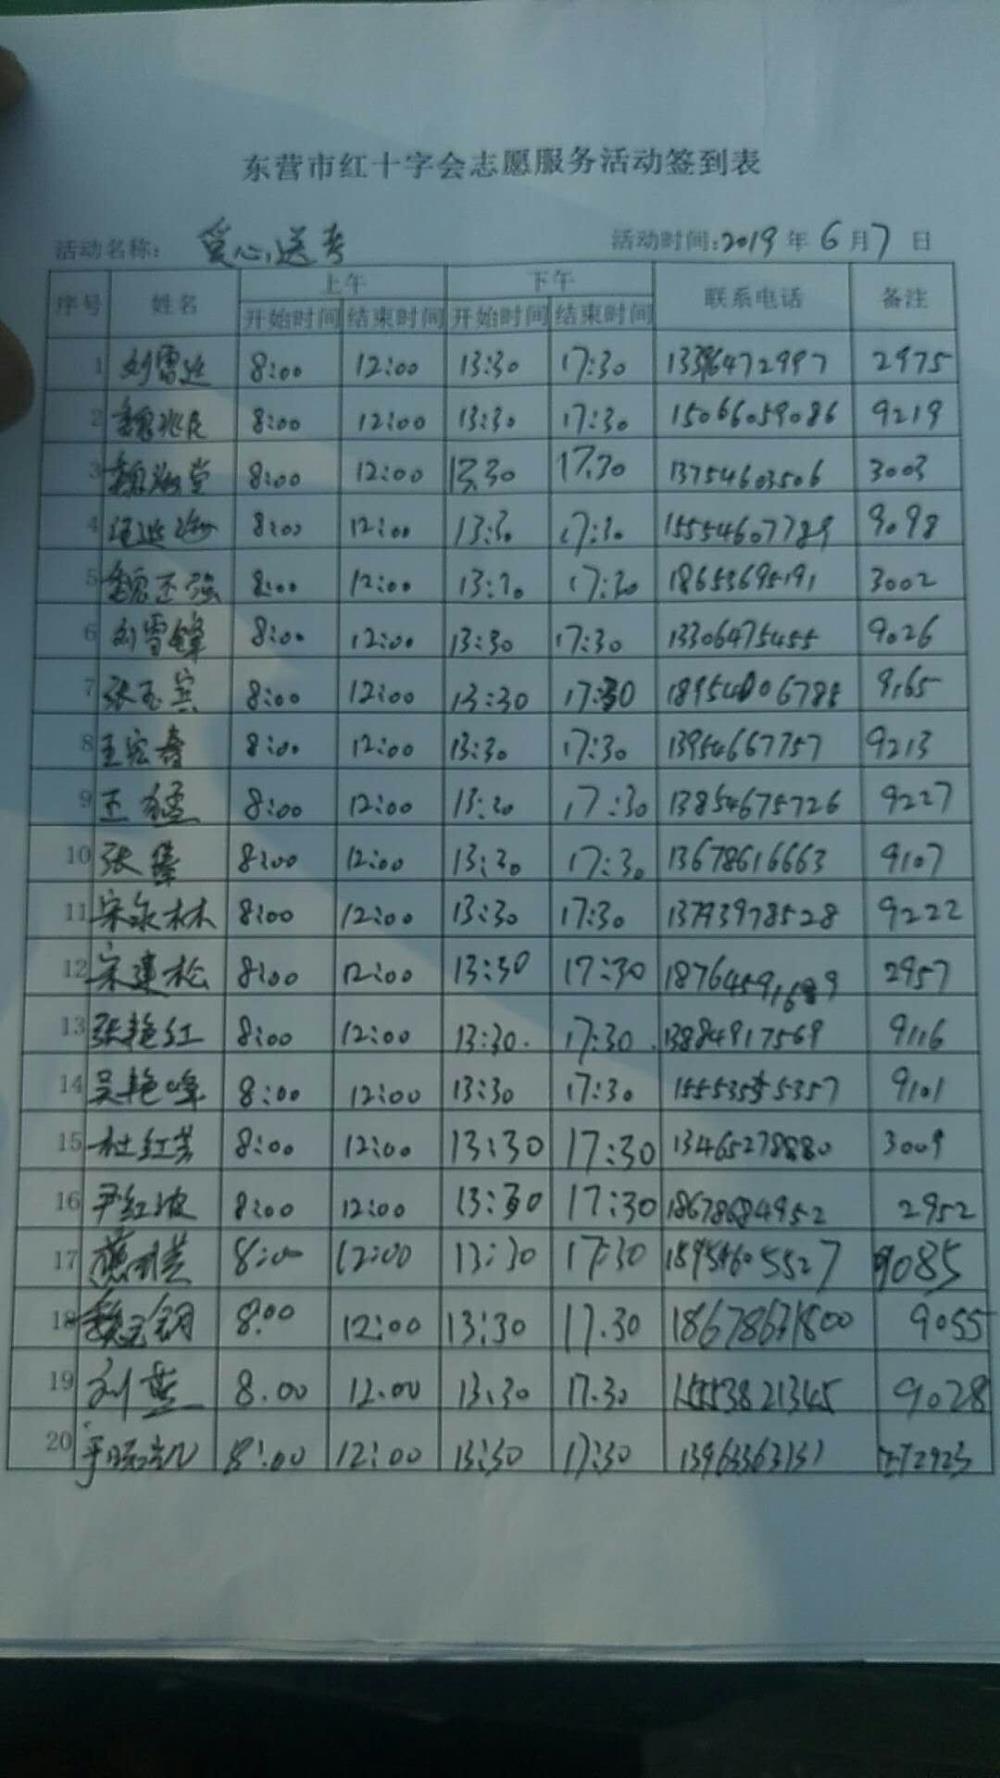 东营市红十字会志愿服务活动签到表
活动名称: 爱心送考 活动时间:2019年6月7日
序号 姓名 上午 下午 联系电话 备注
开始时间 结束时间 开始时间 结束时间
1 刘雪 8:00 12:00 13:30 17:30 2975
2 魏兆民 8:00 12:00 13:30 17:30 15066059086 9219
3 魏 堂 8:00 12:00 13:30 17:30 13754603506 3003
4 8:00 12:00 13:30 17:30 15554607789 9098
5 魏玉强 8:00 12:00 13:30 17:30 18653695191 3002
6 刘雪锋 8:00 12:00 13:30 17:30 13306475455 9026
7 张玉宾 8:00 12:00 13:30 17:30 9165
8 王宏春 8:00 12:00 13:30 17:30 13954667757 9213
9 王猛 8:00 12:00 13:30 17:30 13854675726 9227
10 张 8:00 12:00 13:30 17:30 13678616663 9107
11 宋永林 8:00 12:00 13:30 17:30 13793978528 9222
12 宋建松 8:00 12:00 13:30 17:30 2957
13 张艳红 8:00 12:00 13:30. 17:30. 13884917569 9116
14 吴艳峰 8:00 12:00 13:30 17:30 15553555357 9101
15 杜红芳 8:00 12:00 13:30 17:30 13465278880 3009
16 尹红波 8:00 12:00 13:30 17:30 18678684952 2952
17 8:00 12:00 13:30 17:30 18954605527 9085
18 魏玉钢 8:00 12:00 13:30 17.30 18678671800 9055
19 刘燕 8.00 12.00 13.30 17.30 15553821345 9028
20 8:00 12:00 13:30 17:30 13963363131